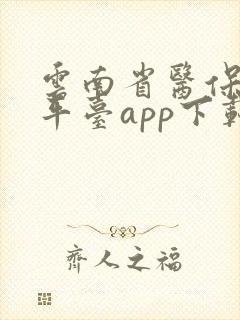 雲南省醫保
平臺app下載
齊人之福